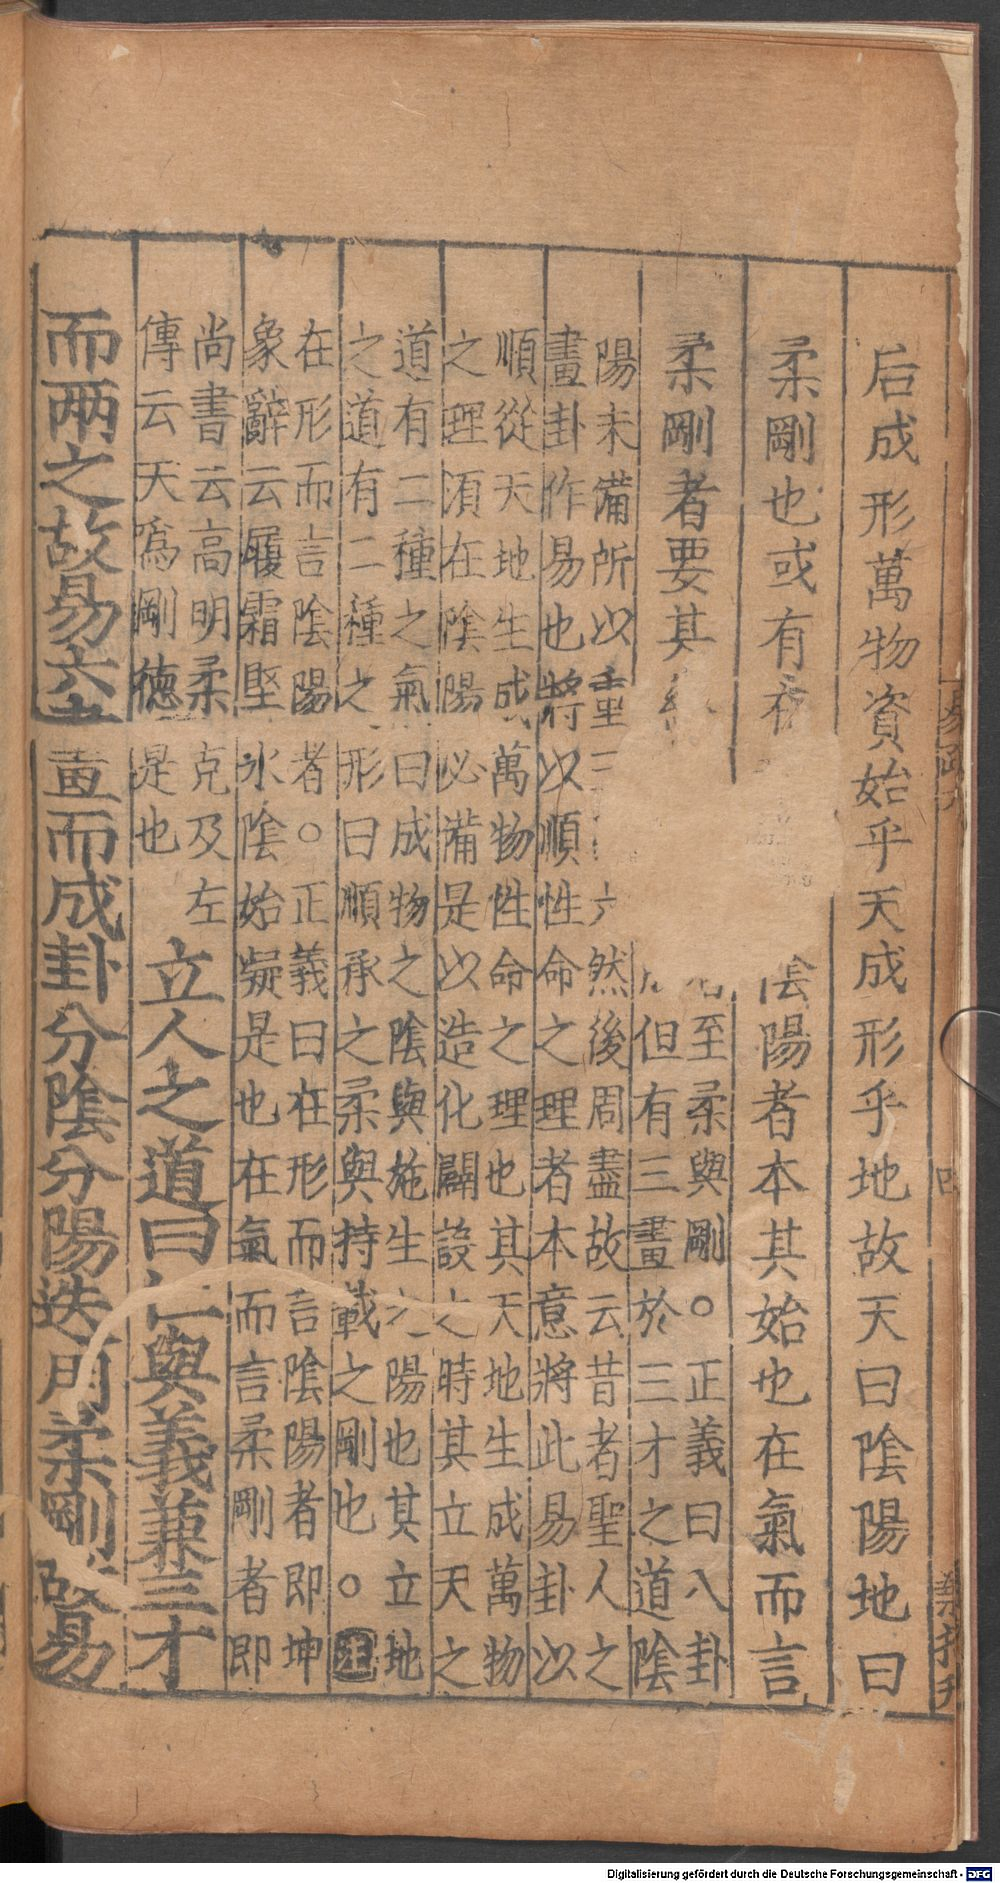 后成形萬物資始乎天成形乎地故天曰陰陽地曰
柔剛也或有陰陽者本其始也在氣而言
柔剛者要其
至柔與剛○正義曰八卦
但有三畫於三才之道陰
陽未備所以重三六然後周盡故云昔者聖人之
畫卦作易也將以順性命之理者本意將此易卦以
順從天地生成萬物性命之理也其天地生成萬物
之理湏在陰陽必備是以造化闢設之時其立天之
道有二種之氣曰成物之陰與施生之陽也其立地
之道有二種之形曰順承之柔與持載之剛也○注
在形而言陰陽者○正義曰在形而言陰陽者即坤
象辭云履霜堅氷陰始凝是也在氣而言柔剛者即
尚書云高明柔克及左
傳云天爲剛德是也
立人之道曰仁與義兼三才
而兩之故易六畫而成卦分陰分陽迭用柔剛故易
Digitalisierung gefördert durch die Deutsche Forschungsgemeinschaft - DFG